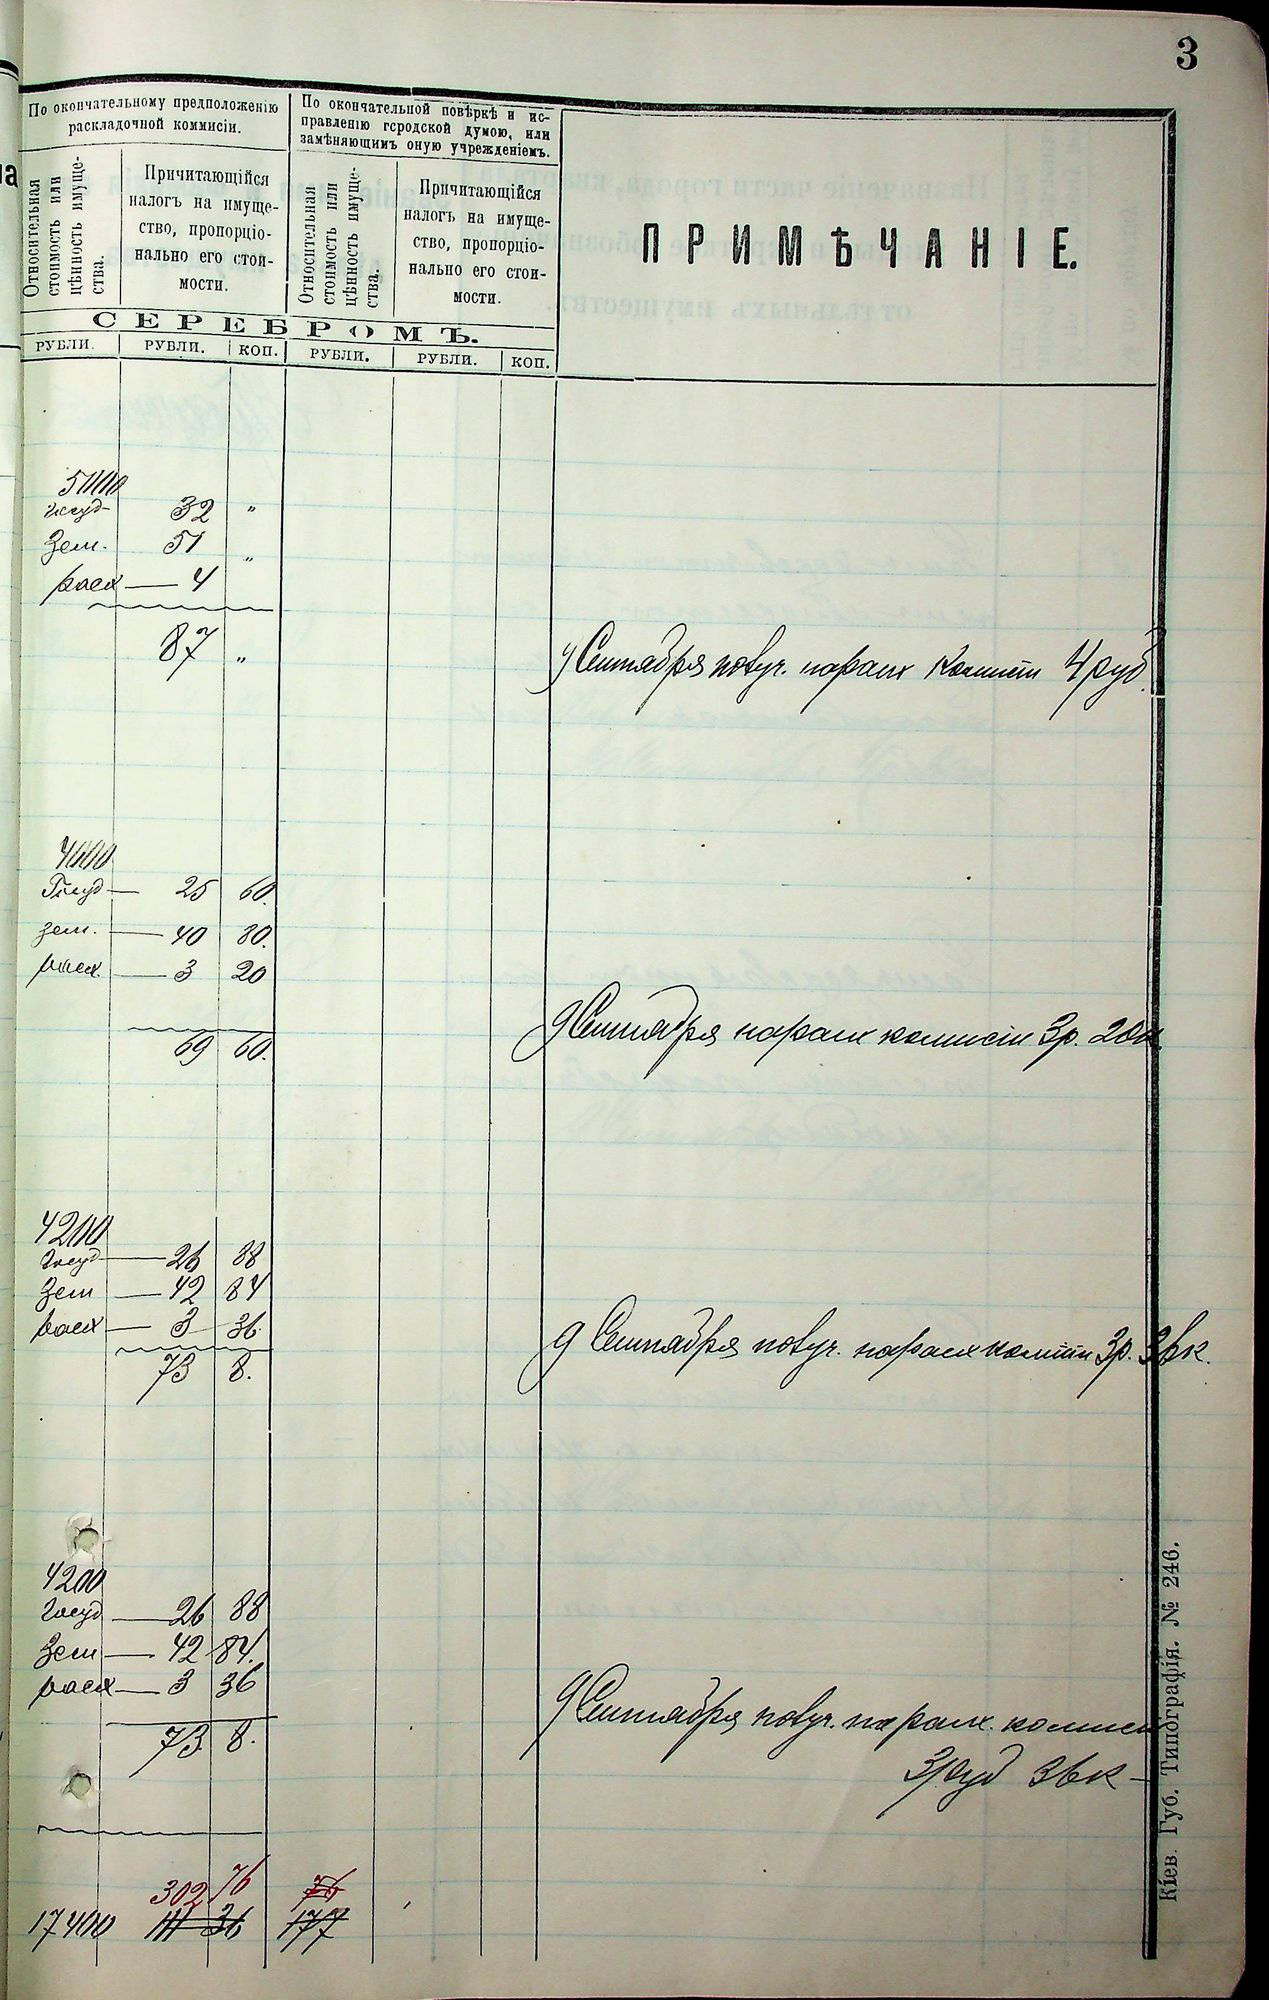 3
По окончательному предположенію
раскладочной коммисіи.
По окончательной повѣркѣ и ис-
правленію городской думою, или
замѣняющимъ оную учрежденіемъ.
ПРИМѢЧАНІЕ.
Относительная
стоимость или
цѣнность имуще-
ства.
Причитающійся
налогъ на имуще-
ство, пропорціо-
нально его стои-
мости.
Относительная
стоимость или
цѣнность имуще-
ства.
Причитающійся
налогъ на имуще-
ство, пропорціо-
нально его стои-
мости.
СЕРЕБРОМЪ.
РУБЛИ. РУБЛИ. КОП. РУБЛИ. РУБЛИ. КОП.
5000
госуд 32 "
Зем. 51 "
расх — 4
87 "
9 Сентября получ. на расх комисіи 4 руб.
4000
Госуд — 25 60.
зем. — 40 80.
расх. — 3 20
69 60.
9 Сентября на расх комисіи 3р. 20к.
4200
госуд — 26 88
Зем — 42 84
расх — 3 36.
73 8.
9 Сентября получ. на расх комисіи 3р. 36к.
4200
госуд — 26 88
Зем — 42 84.
расх — 3 36
73 8.
9 Сентября получ. на расх. комисіи
3 руд 36к —
302 76 76
17400 36 177
Кіев. Губ. Типографія. № 246.